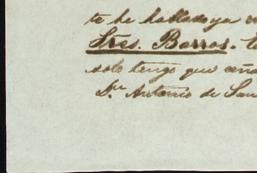 te he hablado ya
Sres. Barros.
solo tengo que
Dn Antonio de San